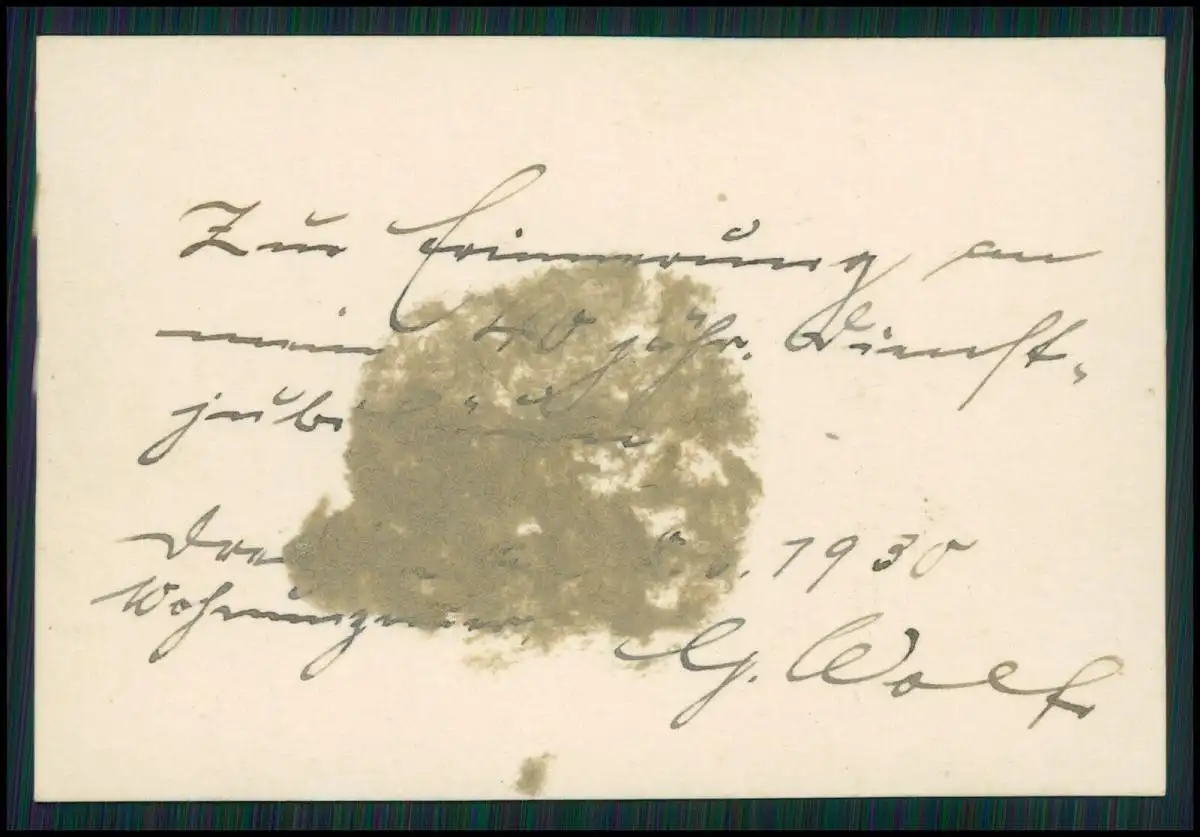 Zur Erinnerung an
mein 40 jähr. Dienst-
jubiläum
1930
G. Wolf